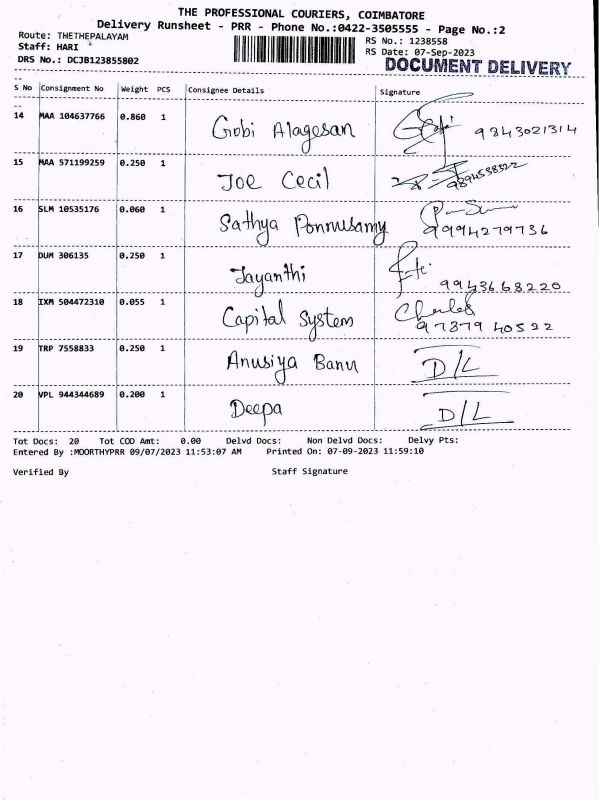 THE PROFESSIONAL COURIERS, COIMBATORE
Delivery Runsheet - PRR - Phone No.:0422-3505555 - Page No.:2
Route: THETHEPALAYAM
RS No.: 1238558
Staff: HARI
RS Date: 07-Sep-2023
DRS No.: DCJB123855802
DOCUMENT DELIVERY
S No Consignment No Weight PCS Consignee Details Signature
14 MAA 104637766 0.860 1 Gobi Alagesan 9343021314
15 MAA 571199259 0.250 1 Joe Cecil 9894538322
16 SLM 10535176 0.060 1 Sathya Ponnusamy 9994279736
17 DUM 306135 0.250 1 Jayanthi 9943668220
18 IXM 504472310 0.055 1 Capital System 97879 40522
19 TRP 7558833 0.250 1 Anusiya Banu D/L
20 VPL 944344689 0.200 1 Deepa D/L
Tot Docs: 20 Tot COD Amt: 0.00 Delvd Docs: Non Delvd Docs: Delvy Pts:
Entered By :MOORTHYPRR 09/07/2023 11:53:07 AM Printed On: 07-09-2023 11:59:10
Verified By Staff Signature